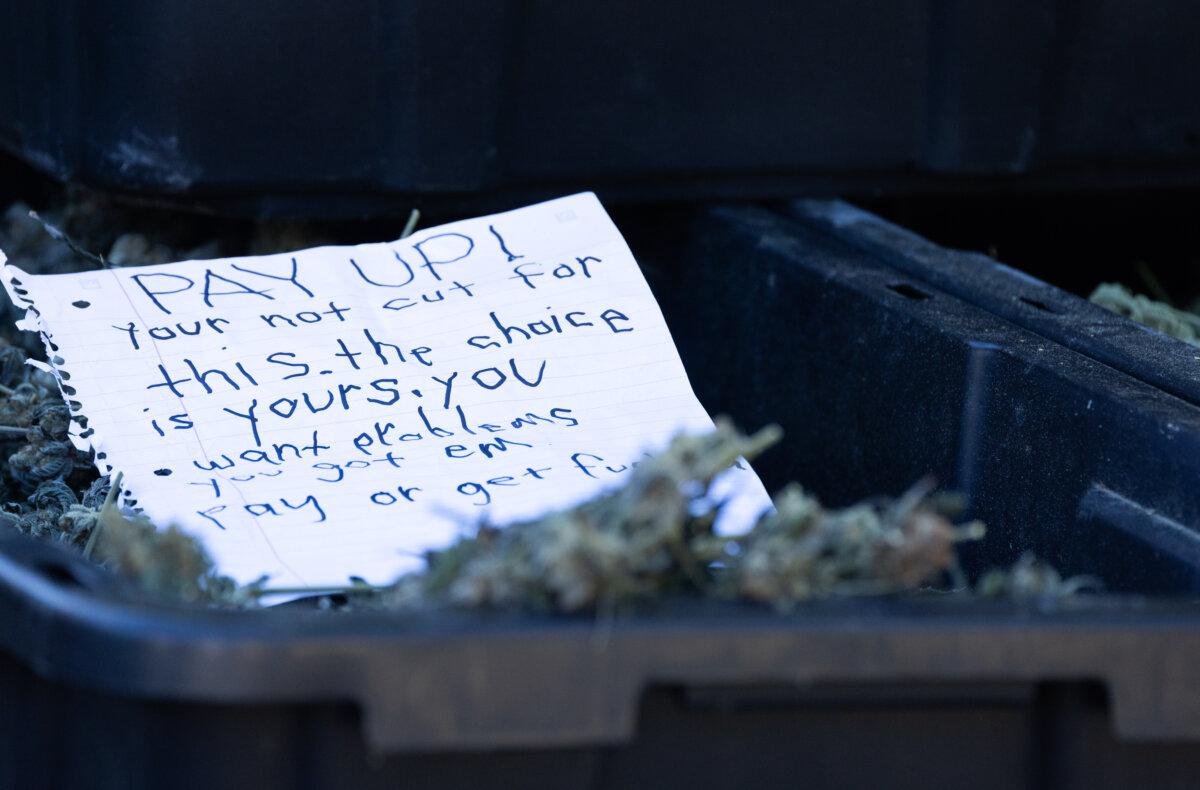 PAY UP!
Your not cut for
this. the choice
is yours. you
want problems
you got em
Pay or get